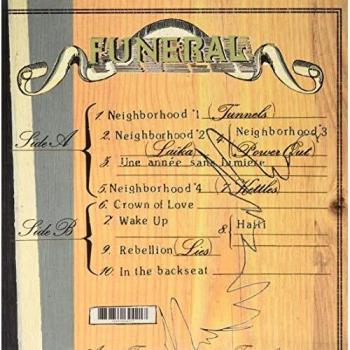 FUNERAL
Side A
1. Neighborhood #1 (Tunnels)
2. Neighborhood #2 (Laika)
4 Neighborhood #3 (Power Out)
3 Une année sans lumiere
5. Neighborhood #4 (7 Kettles)
Side B
6. Crown of Love
7. Wake Up
8. Haiti
9. Rebellion (Lies)
10. In the backseat